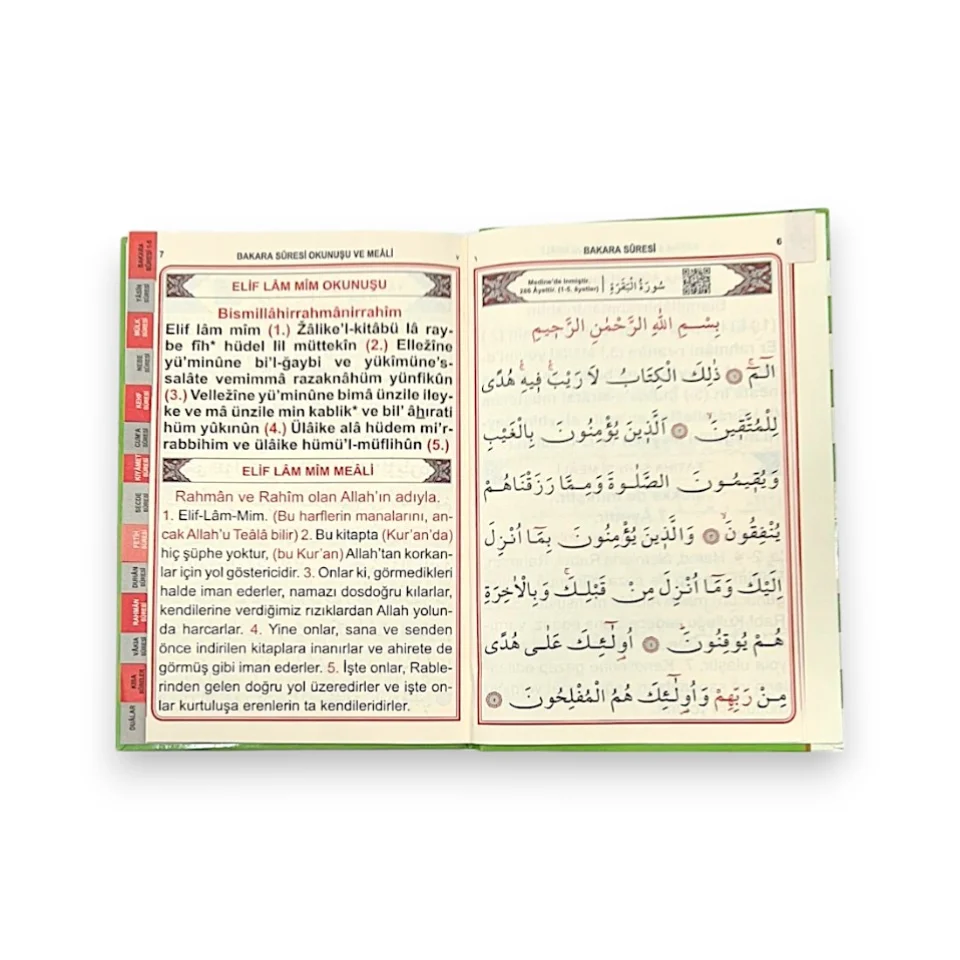 BAKARA SÛRESİ 1-5
YÂSÎN SÛRESİ
MÜLK SÛRESİ
NEBE SÛRESİ
KEHF SÛRESİ
CUM'A SÛRESİ
KIYÂMET SÛRESİ
SECDE SÛRESİ
FETİH SÛRESİ
DUHÂN SÛRESİ
RAHMÂN SÛRESİ
VÂKIA SÛRESİ
KISA SÛRELER
DUÂLAR
7 BAKARA SÛRESİ OKUNUŞU VE MEÂLİ ٧
ELİF LÂM MÎM OKUNUŞU
Bismillâhirrahmânirrahîm
Elif lâm mîm (1.) Žâlike'l-kitâbü lâ ray-
be fîh* hüdel lil müttekîn (2.) Elležîne
yü'minûne bi'l-ğaybi ve yükîmüne's-
salâte vemimmâ razaknâhüm yünfikûn
(3.) Velležîne yü'minûne bimâ ünzile iley-
ke ve mâ ünzile min kablik* ve bil' âẖırati
hüm yûkınûn (4.) Ülâike alâ hüdem mi'r-
rabbihim ve ülâike hümü'l-müflihûn (5.)
ELİF LÂM MÎM MEÂLİ
Rahmân ve Rahîm olan Allah'ın adıyla.
1. Elif-Lâm-Mim. (Bu harflerin manalarını, an-
cak Allah'u Teâlâ bilir) 2. Bu kitapta (Kur'an'da)
hiç şüphe yoktur, (bu Kur'an) Allah'tan korkan-
lar için yol göstericidir. 3. Onlar ki, görmedikleri
halde iman ederler, namazı dosdoğru kılarlar,
kendilerine verdiğimiz rızıklardan Allah yolun-
da harcarlar. 4. Yine onlar, sana ve senden
önce indirilen kitaplara inanırlar ve ahirete de
görmüş gibi iman ederler. 5. İşte onlar, Rable-
rinden gelen doğru yol üzeredirler ve işte on-
lar kurtuluşa erenlerin ta kendileridirler.
BAKARA SÛRESİ 6
Medine'de inmiştir.
286 Âyettir. (1-5. âyetler)
سُورَةُ الْبَقَرَةِ
بِسْمِ اللّٰهِ الرَّحْمٰنِ الرَّحٖيمِ
الٓمٓ ۚ ﴿١﴾ ذٰلِكَ الْكِتَابُ لَا رَيْبَ ۚ فٖيهِ ۚ هُدًى
لِلْمُتَّقٖينَ ۙ ﴿٢﴾ اَلَّذٖينَ يُؤْمِنُونَ بِالْغَيْبِ
وَيُقٖيمُونَ الصَّلٰوةَ وَمِمَّا رَزَقْنَاهُمْ
يُنْفِقُونَ ۙ ﴿٣﴾ وَالَّذٖينَ يُؤْمِنُونَ بِمَٓا اُنْزِلَ
اِلَيْكَ وَمَٓا اُنْزِلَ مِنْ قَبْلِكَ ۚ وَبِالْاٰخِرَةِ
هُمْ يُوقِنُونَ ۜ ﴿٤﴾ اُولٰٓئِكَ عَلٰى هُدًى
مِنْ رَبِّهِمْ وَاُولٰٓئِكَ هُمُ الْمُفْلِحُونَ ﴿٥﴾